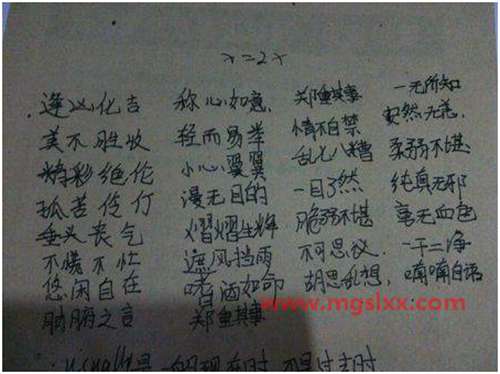 x=2x
逢凶化吉 称心如意, 郑重其事 一无所知
美不胜收 轻而易举 情不自禁 安然无恙,
精彩绝伦 小心翼翼 乱七八糟 柔弱不堪
孤苦伶仃 漫无目的 一目了然 纯真无邪
垂头丧气 熠熠生辉 脆弱不堪 毫无血色
不慌不忙 遮风挡雨 不可思议. 一干二净
悠闲自在 嗜酒如命 胡思乱想, 喃喃自语
肺腑之言 郑重其事
www.mgslxx.com
一般现在时